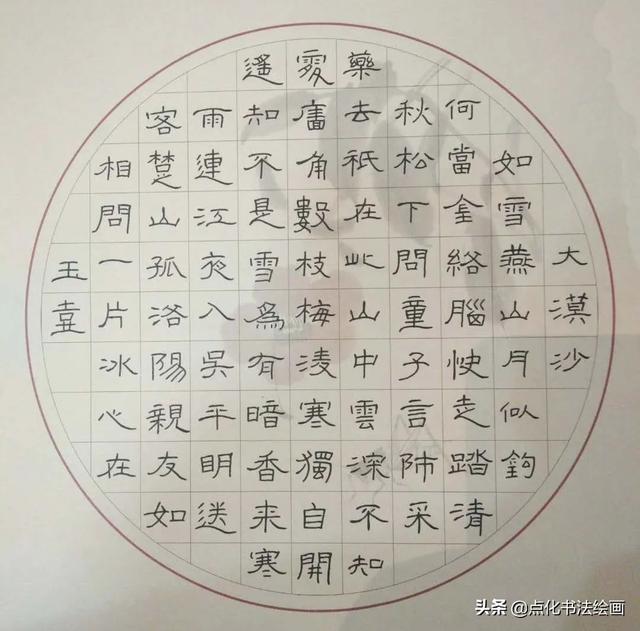 大漠沙
如雪燕山月似鉤
何當金絡腦快走踏清
秋松下問童子言師采
藥去祇在此山中雲深不知
處牆角數枝梅淩寒獨自開
遙知不是雪爲有暗香来寒
雨連江夜入吳平明送
客楚山孤洛陽親友如
相問一片冰心在
玉壺
头条 @点化书法绘画